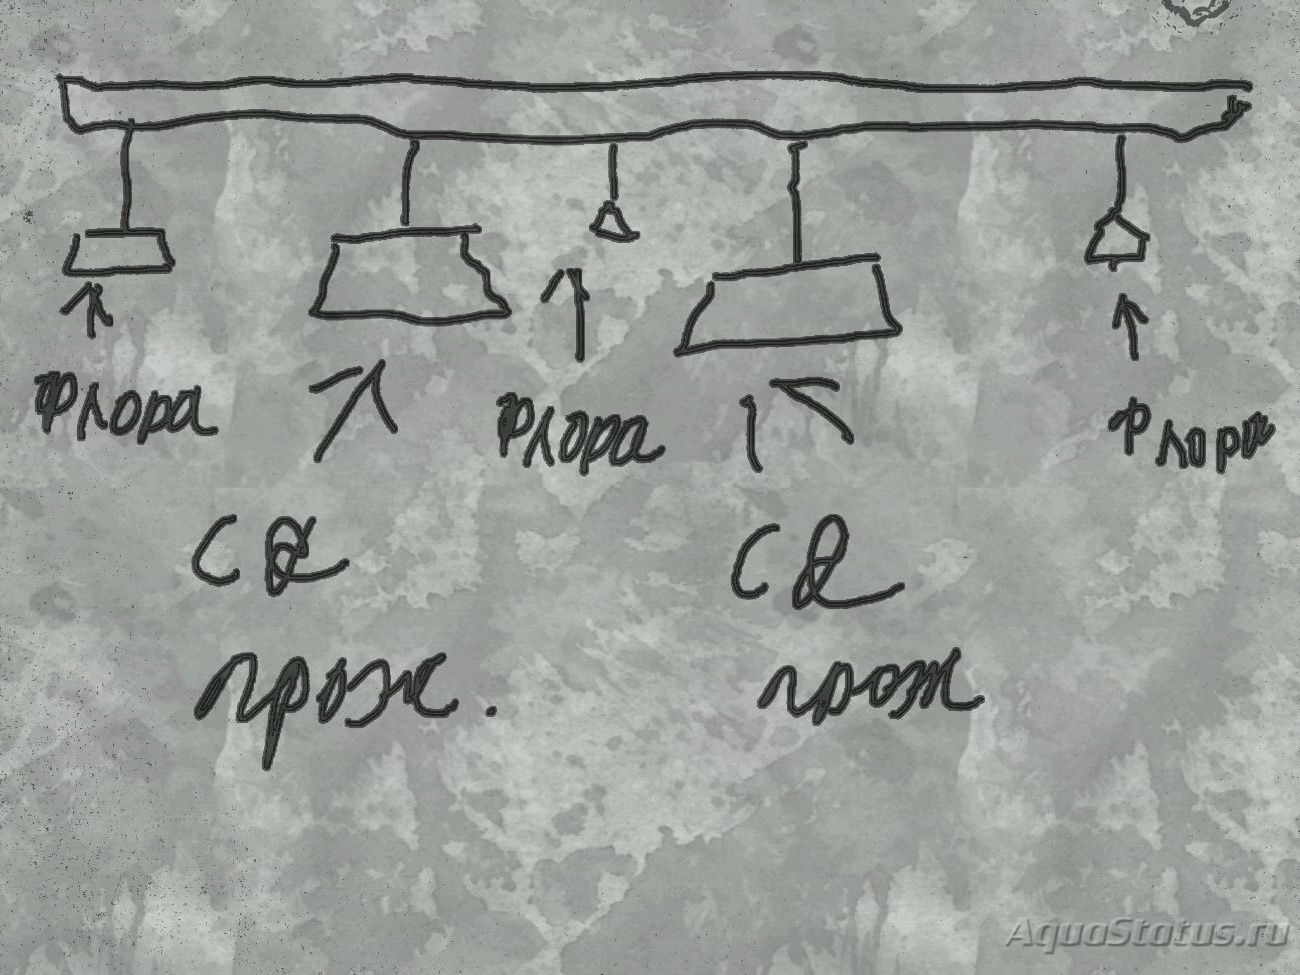 флора
флора
флора
СД
СД
прож.
прож
AquaStatus.ru